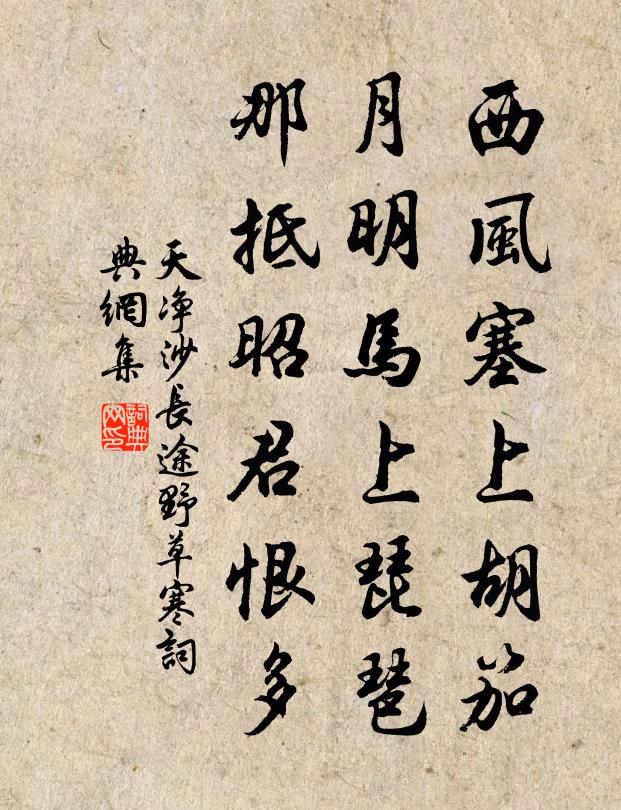 西風塞上胡笳
月明馬上琵琶
那抵昭君恨多
天净沙長途野草寒詞
典網集
詞典
网印